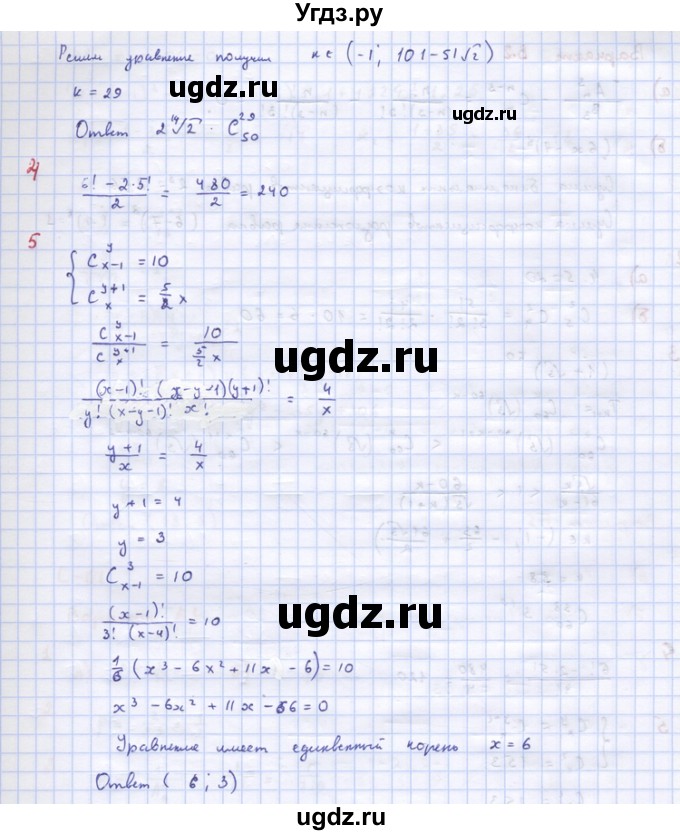 Угдз.ру
Решим уравнение получим к ∈ (-1; 101-51√2)
к = 29
ugdz.ru
ugdz.ru
Ответ 2 ¹⁴√2 · C₅₀²⁹
4
(6! - 2·5!)/2 = 480/2 = 240
5
{ C_{x-1}^{y} = 10
C_{x}^{y+1} = 5/2 x
C_{x-1}^{y} / C_{x}^{y+1} = 10 / (5/2 x)
ugdz.ru
(x-1)! (x-y-1)(y+1)! / y! (x-y-1)! x! = 4/x
(y+1)/x = 4/x
ugdz.ru
y+1 = 4
y = 3
C_{x-1}^{3} = 10
ugdz.ru
(x-1)! / 3! (x-4)! = 10
ugdz.ru
1/6 (x³ - 6x² + 11x - 6) = 10
x³ - 6x² + 11x - 66 = 0
Уравнение имеет единвенный корень x = 6
Ответ (6; 3)
ugdz.ru
ugdz.ru